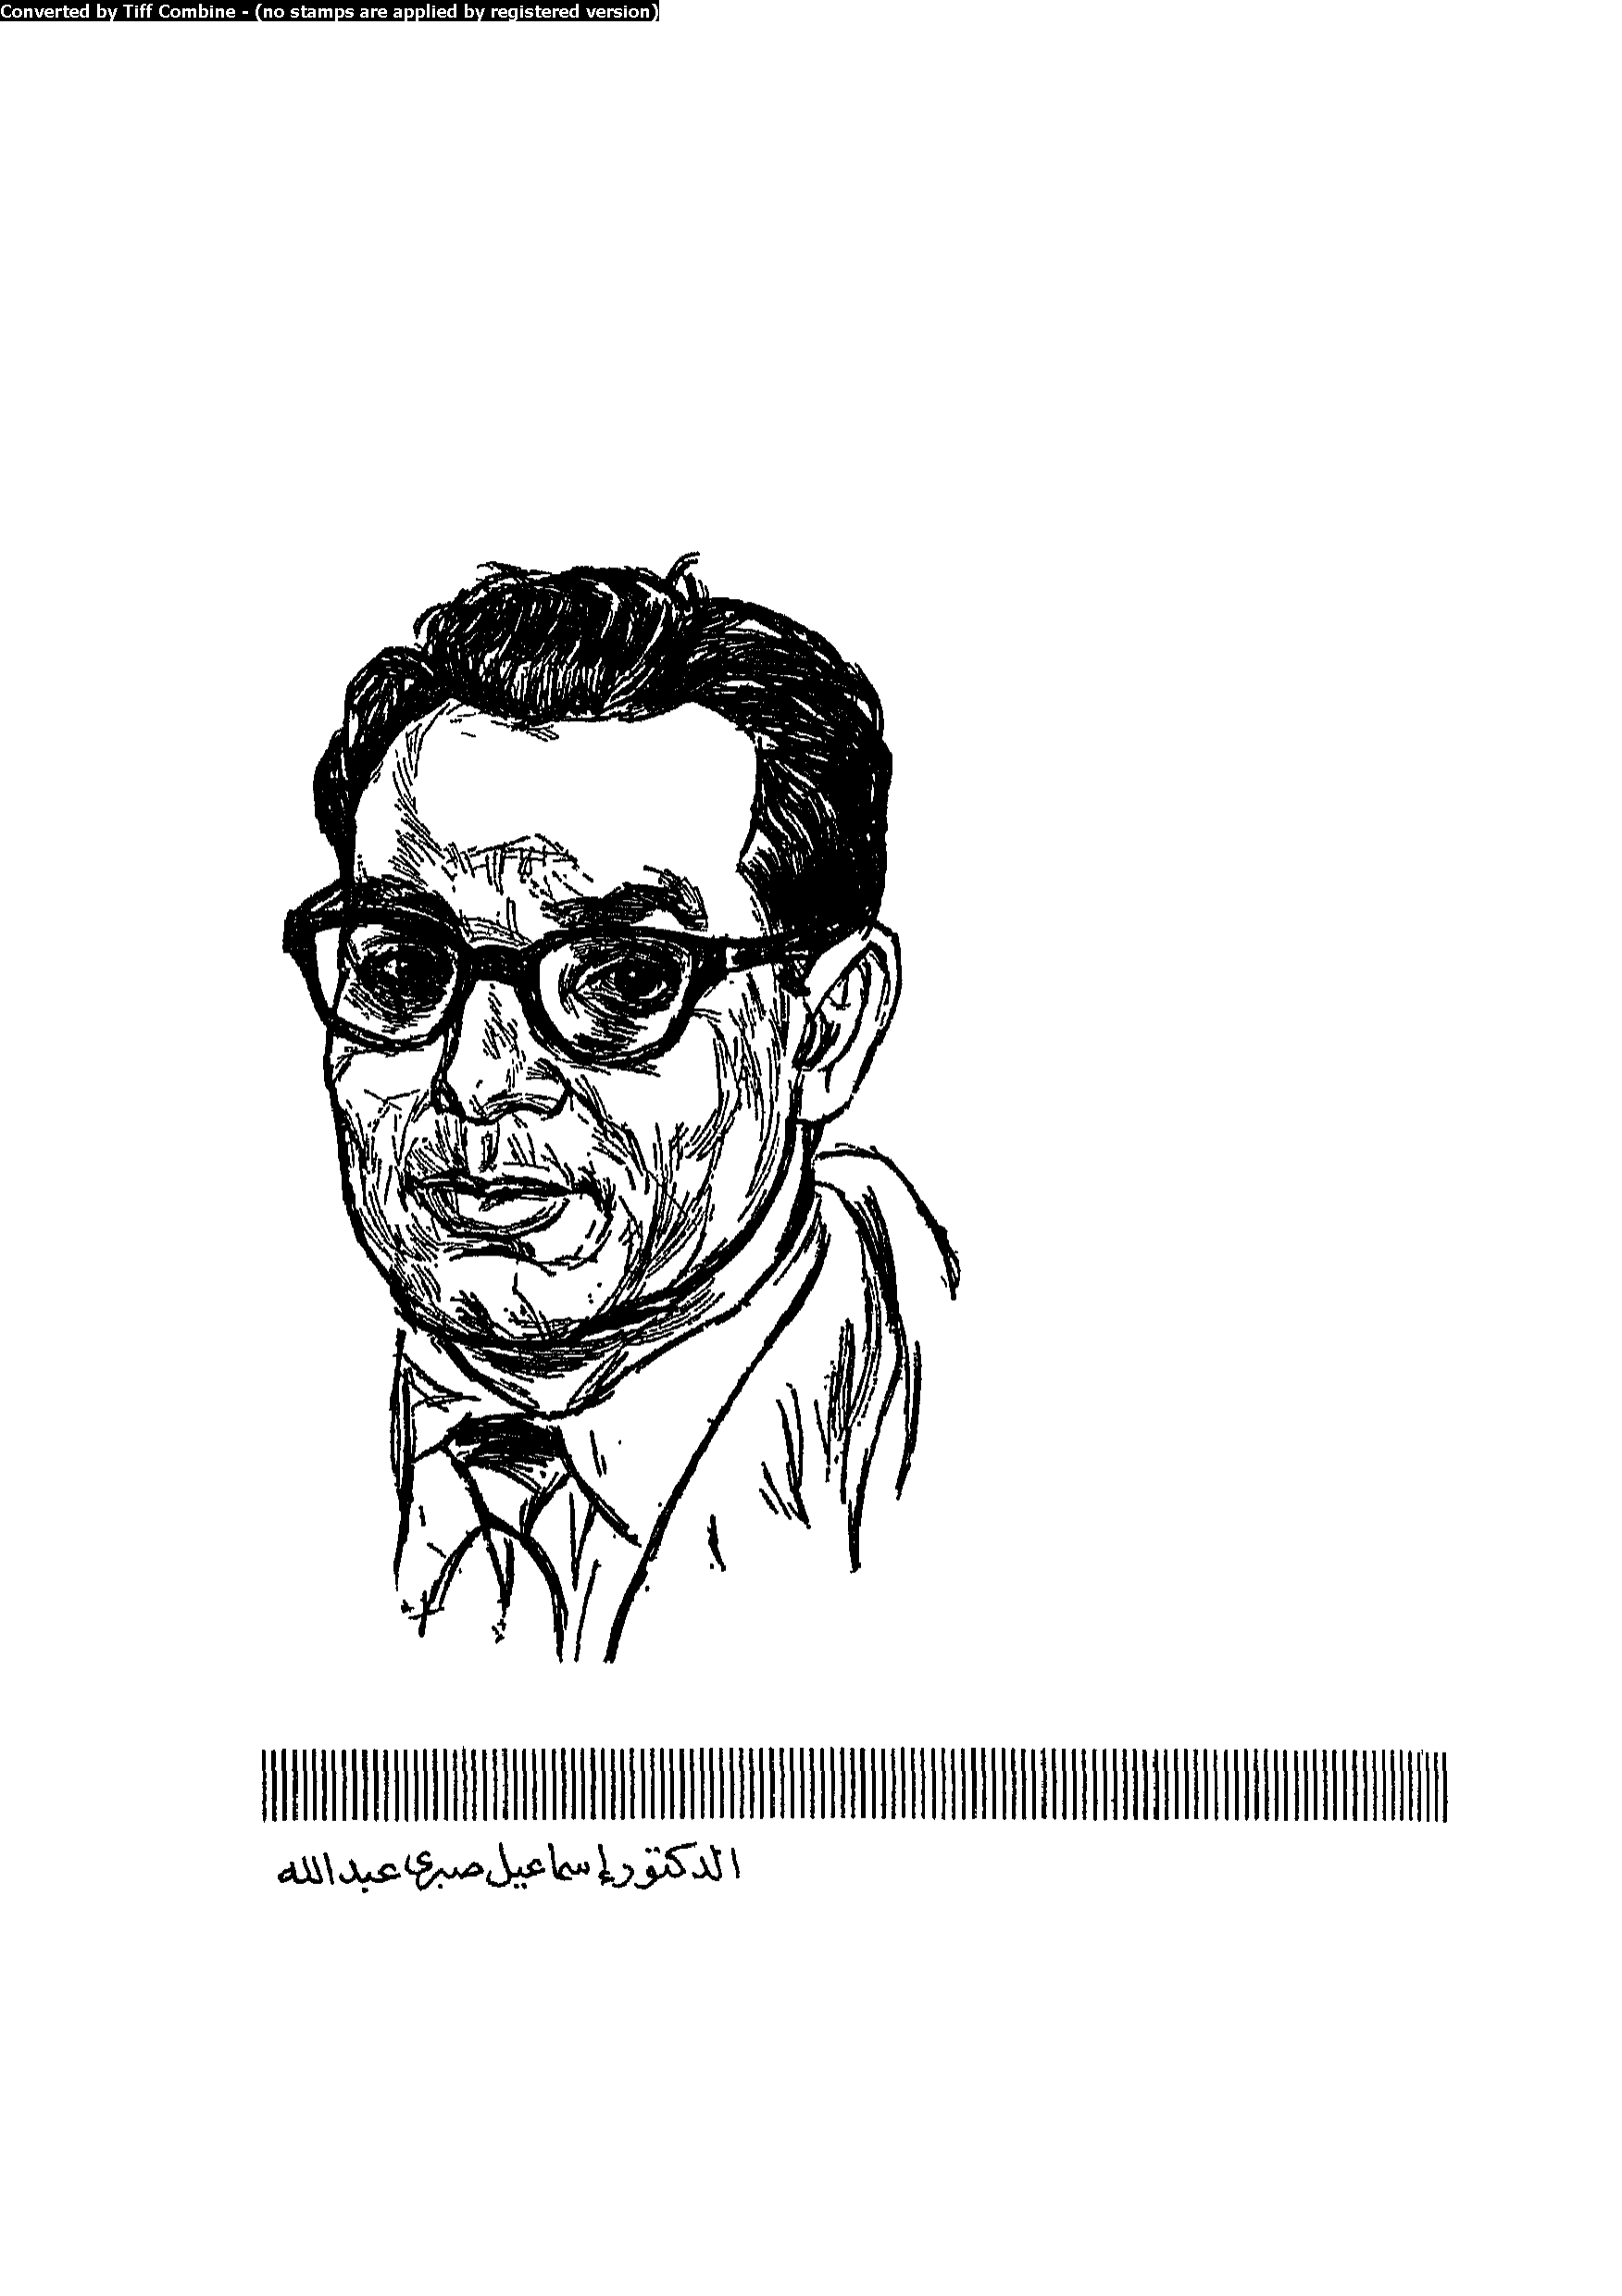 Converted by Tiff Combine - (no stamps are applied by registered version)
الدكتور إسماعيل صبرى عبد الله